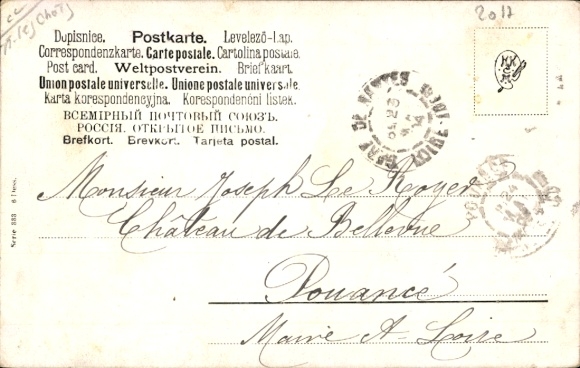 2017
Dopisnice. Postkarte. Levelező-Lap.
Correspondenzkarte. Carte postale. Cartolina postale.
Post card. Weltpostverein. Briefkaart.
Union postale universelle. Unione postale universale.
Karta korespondencyjna. Korespondenční listek.
ВСЕМІРНЫЙ ПОЧТОВЫЙ СОЮЗЪ.
РОССІЯ. ОТКРЫТОЕ ПИСЬМО.
Brefkort. Brevkort. Tarjeta postal.
Monsieur Joseph Le Royer
Château de Bellevue
Pouancé
Maine & Loire
Serie 333